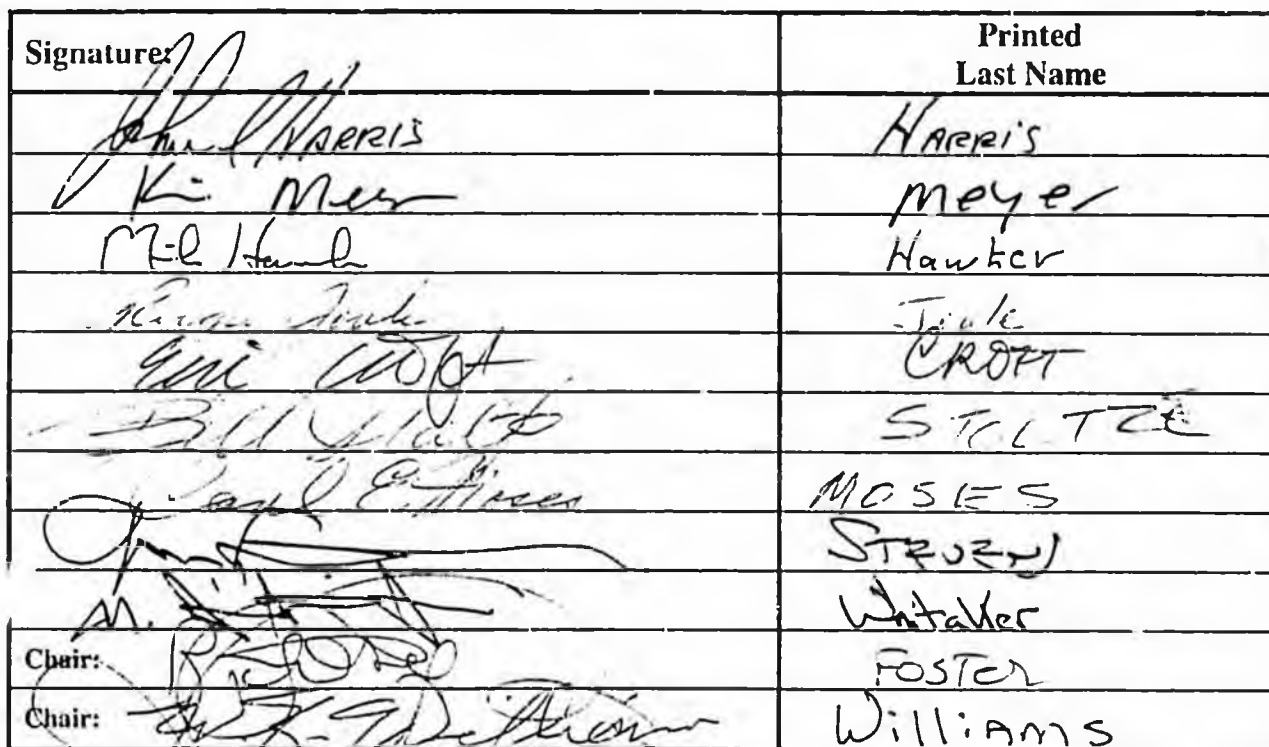 Signature: Printed
Last Name
John Harris HARRIS
Kevin Meyer Meyer
Mike Hawker Hawker
Eric Croft CROFT
Bill Stoltze STOLTZE
Carl E. Moses MOSES
STEVENS
M. Whitaker
Chair: FOSTER
Chair: Williams Williams